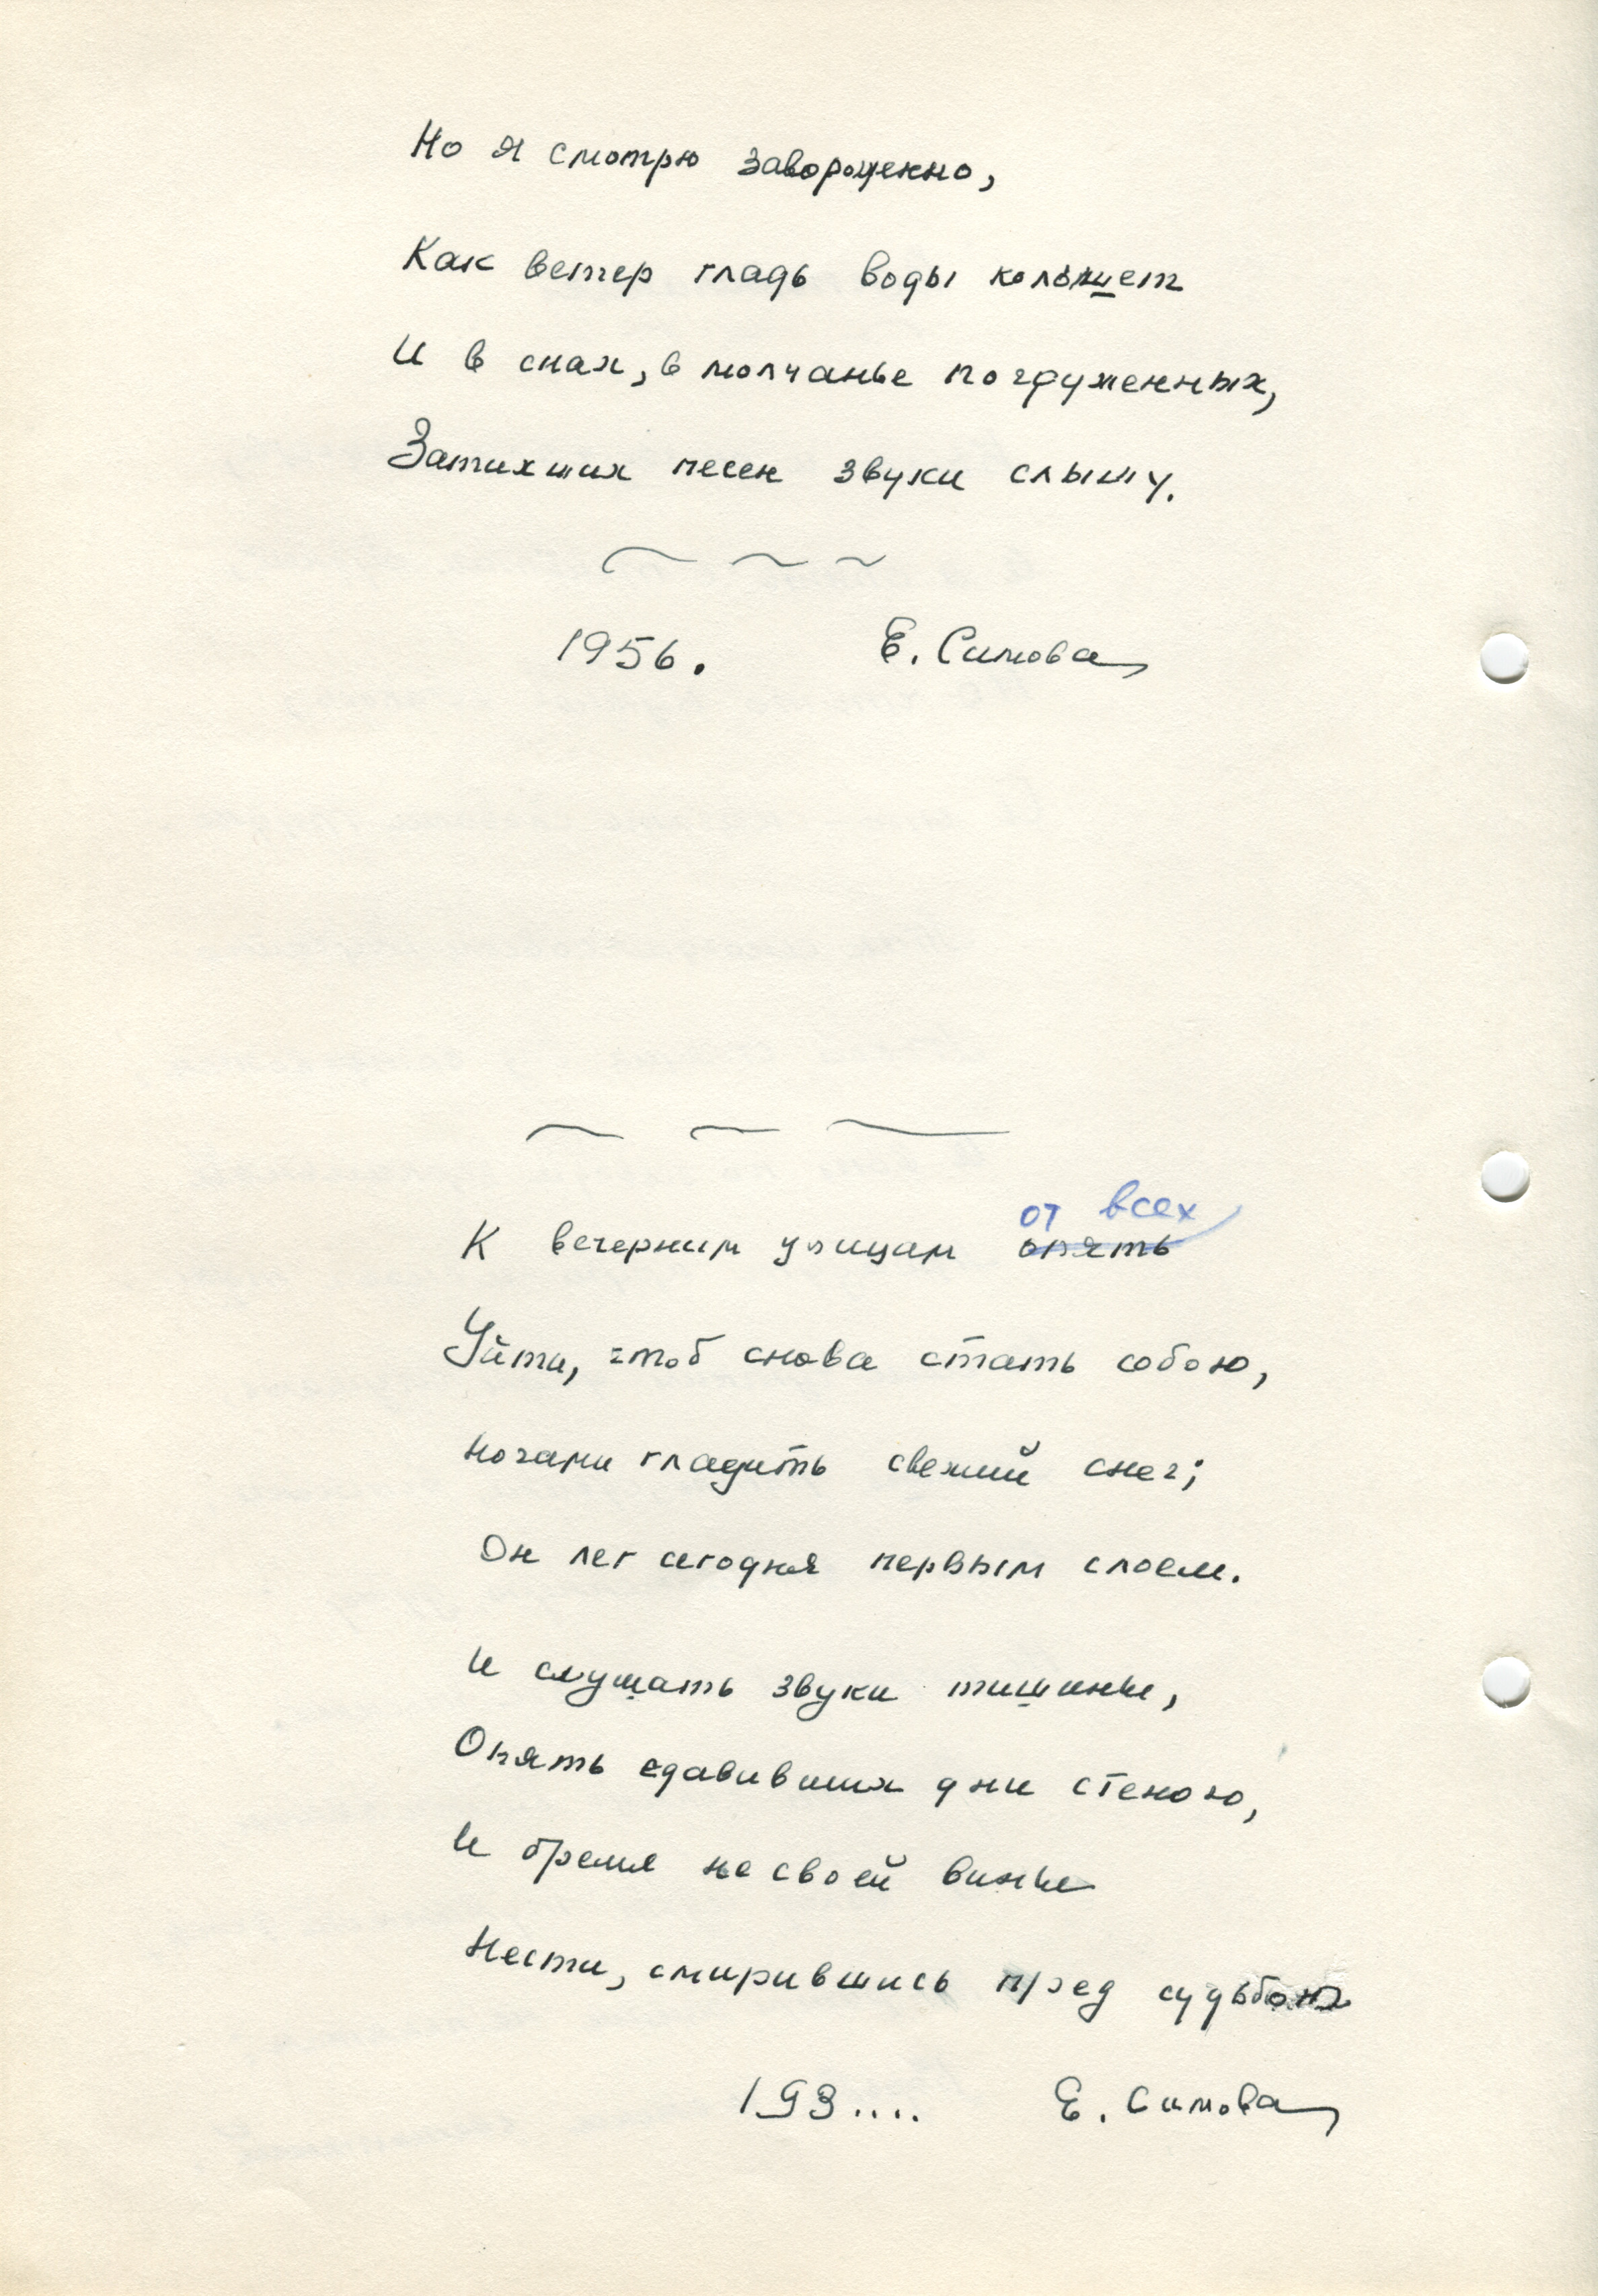 Но я смотрю завороженно,
Как ветер гладь воды колышет
И в снах, в молчанье погруженных,
Затихших песен звуки слышу.
1956. Е. Симова
от всех
К вечерним улицам опять
Уйти, чтоб снова стать собою,
Ногами гладить свежий снег;
Он лег сегодня первым слоем.
И слушать звуки тишины,
Опять сдавивших дни стеною,
И бремя не своей вины
Нести, смирившись пред судьбою
193.... Е. Симова